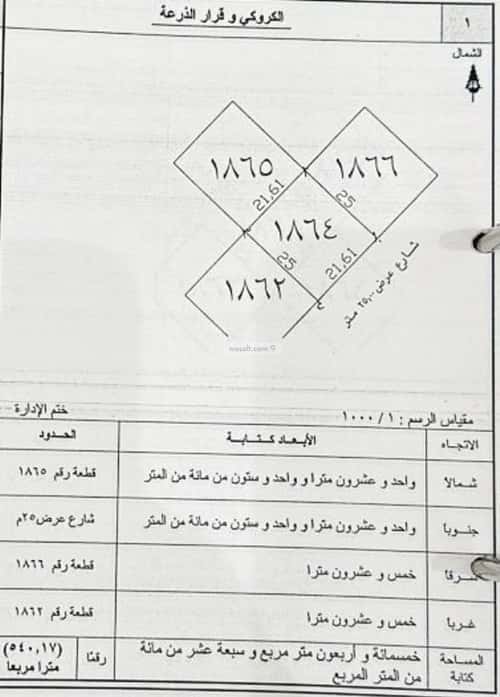 ١
الكروكي و قرار الذرعة
الشمال
١٨٦٥
١٨٦٦
21,61
25
١٨٦٤
25
21,61
١٨٦٢
شارع عرض ٢٥,٠٠ متر
wasalt.com
مقياس الرسم : ١ / ١٠٠٠
ختم الإدارة
الاتجاه
الأبعاد كتابة
الحدود
شمالا
واحد و عشرون مترا و واحد و ستون من مائة من المتر
قطعة رقم ١٨٦٥
جنوبا
واحد و عشرون مترا و واحد و ستون من مائة من المتر
شارع عرض ٢٥م
شرقا
خمس و عشرون مترا
قطعة رقم ١٨٦٦
غربا
خمس و عشرون مترا
قطعة رقم ١٨٦٢
المساحة كتابة
خمسمائة و أربعون متر مربع و سبعة عشر من مائة
من المتر المربع
رقمًا
(٥٤٠,١٧)
مترا مربعا